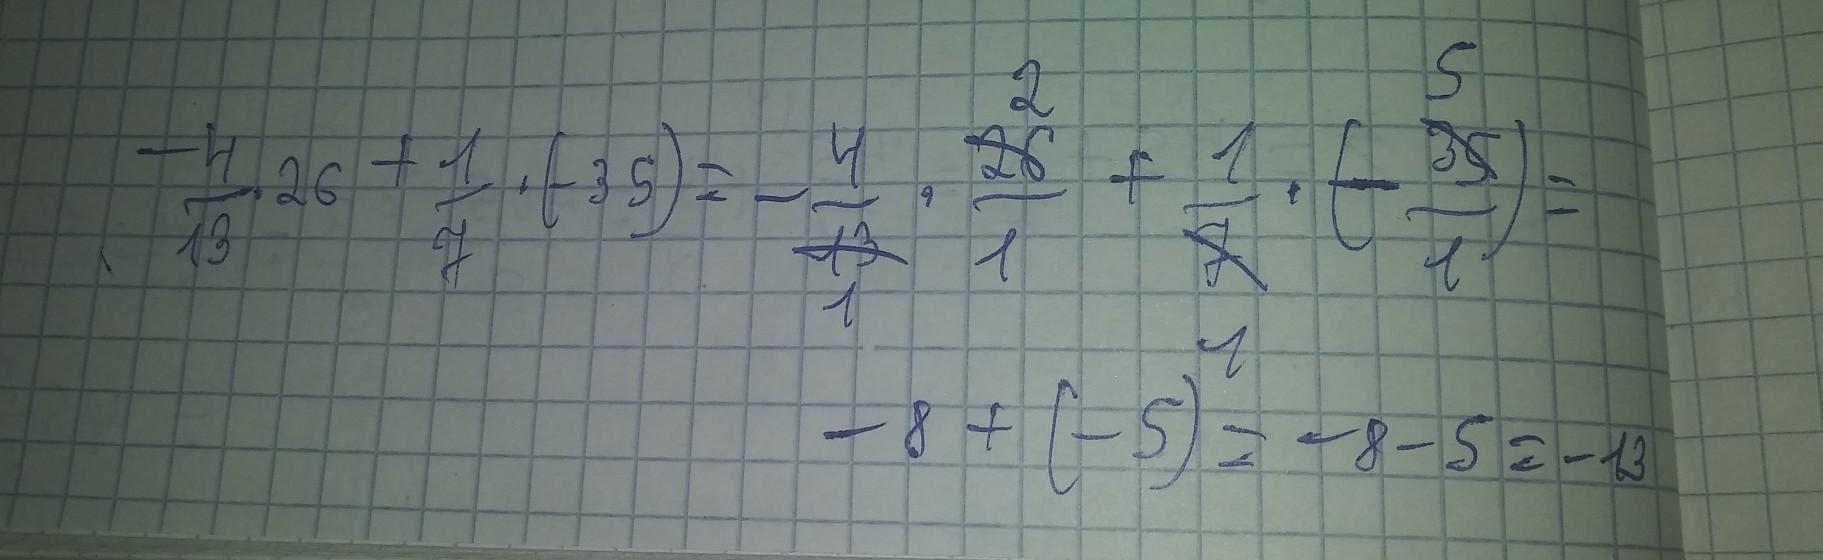 -4/13 · 26 + 1/7 · (-35) = - 4/13 · 26/1 + 1/7 · (- 35/1) =
2 5 1 1
-8 + (-5) = -8 - 5 = -13